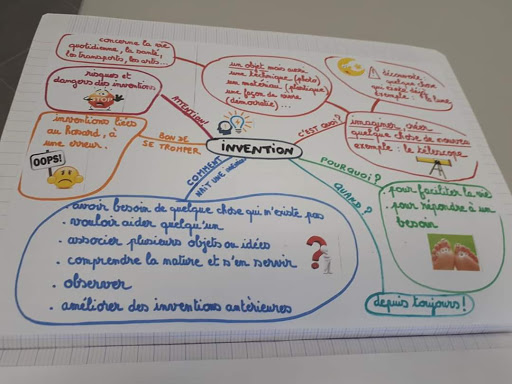 concerne la vie
quotidienne, la santé,
les transports, les arts...
un objet mais aussi
une technique (photo)
un matériau (plastique)
une façon de vivre
(démocratie) ...
découverte
quelque chose
qui existe déjà
exemple : lune
risques et
dangers des inventions
STOP
ATTENTION
inventions liées
au hasard, à
une erreur.
OOPS!
BON DE
SE TROMPER
INVENTION
C'EST QUOI?
imaginer, créer
quelque chose de nouveau
exemple : le télescope
COMMENT
NAÎT UNE INVENTION
POURQUOI?
QUAND?
pour faciliter la vie
. pour répondre à un
besoin
. avoir besoin de quelque chose qui n'existe pas
. vouloir aider quelqu'un
. associer plusieurs objets ou idées
. comprendre la nature et s'en servir
. observer
. améliorer des inventions antérieures
depuis toujours!